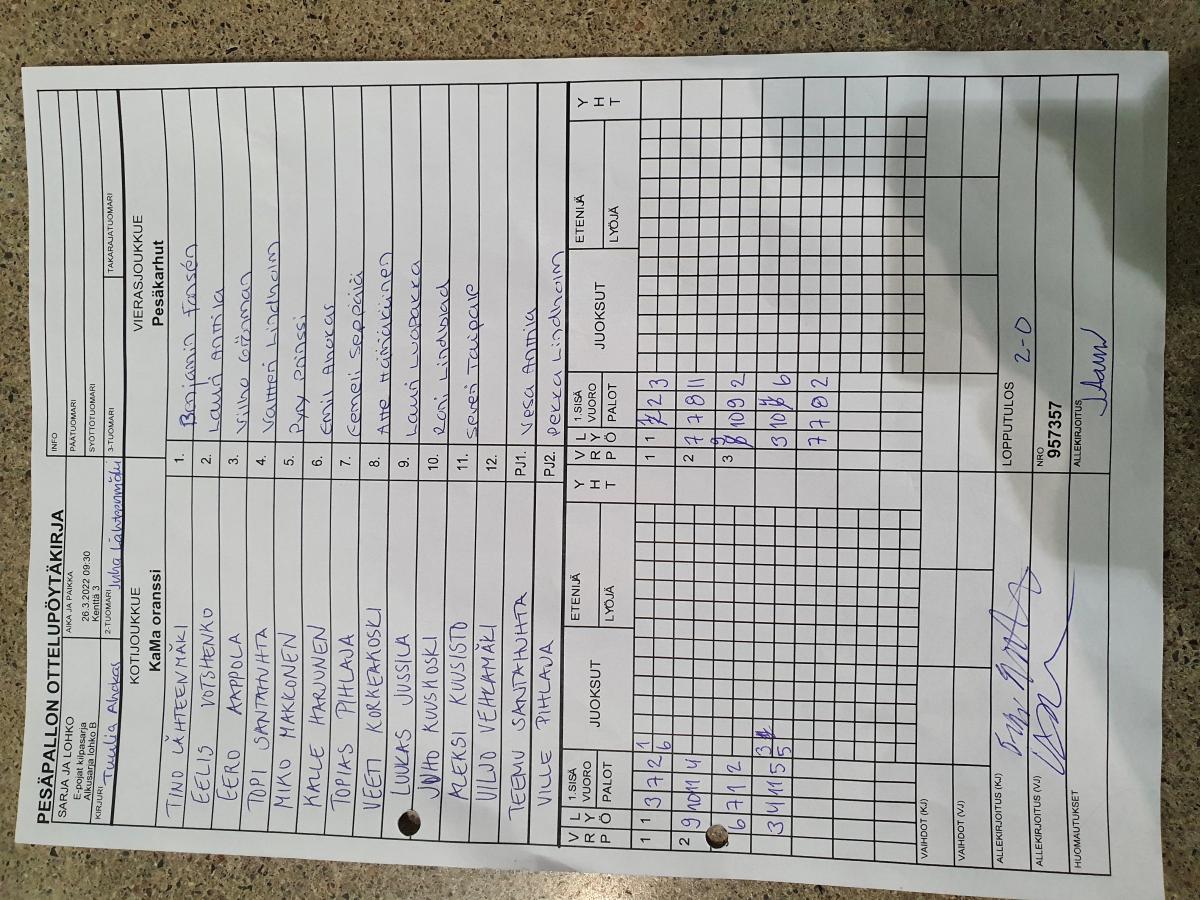 PESÄPALLON OTTELUPÖYTÄKIRJA
SARJA JA LOHKO
E-pojat kilpasarja
Alkusarja lohko B
AIKA JA PAIKKA
26.3.2022 09:30
Kenttä 3
INFO
PÄÄTUOMARI
SYÖTTÖTUOMARI
KIRJURI Tuulia Ahokas
2-TUOMARI Juha Lähteenmäki
3-TUOMARI
TAKARAJATUOMARI
KOTIJOUKKUE
KaMa oranssi
VIERASJOUKKUE
Pesäkarhut
TINO LÄHTEENMÄKI 1. Benjamin Forsén
EELIS VOTSHENKO 2. Lauri Anttila
EERO AAPPOLA 3. Vilho Gröhman
TOPI SANTAHUHTA 4. Valtteri Lindholm
MIKO MAKKONEN 5. Pyry Prinssi
KALLE HARJUNEN 6. Emil Ahokas
TOPIAS PIHLAVA 7. Eemeli Seppälä
VEETI KORKEAKOSKI 8. Atte
LUUKAS JUSSILA 9. Lauri Luopakka
JUHO KUUSKOSKI 10. Roni Lindblad
ALEKSI KUUSISTO 11. Severi Taipale
VILJO VEHLAMÄKI 12.
TEEMU SANTAHUHTA PJ1. Vesa Anttila
VILLE PIHLAVA PJ2. Pekka Lindholm
V R P
L Y Ö
1.SISÄ VUORO
PALOT
JUOKSUT
ETENIJÄ
LYÖJÄ
Y H T
V R P
L Y Ö
1.SISÄ VUORO
PALOT
JUOKSUT
ETENIJÄ
LYÖJÄ
Y H T
1 1 3 7 2 1 6
1 1 2 3
2 9 10 11 4
2 7 7 8 11
6 7 1 2
3 9 10 9 2
3 4 11 5 5 3
3 10 6
7 7 8 2
VAIHDOT (KJ)
VAIHDOT (VJ)
ALLEKIRJOITUS (KJ)
LOPPUTULOS 2-0
ALLEKIRJOITUS (VJ)
NRO
957357
HUOMAUTUKSET
ALLEKIRJOITUS